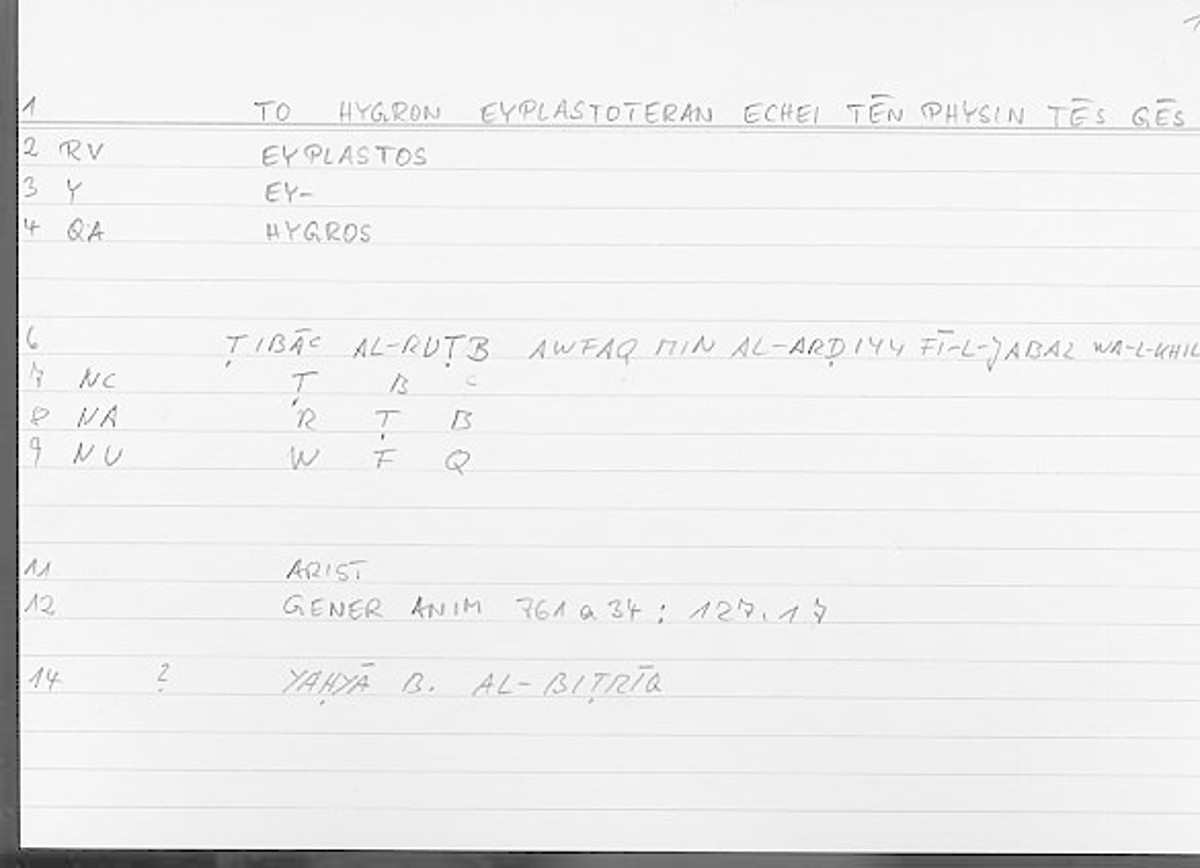 1
1 TO HYGRON EYPLASTOTERAN ECHEI TĒN PHYSIN TĒS GĒS
2 RV EYPLASTOS
3 Y EY-
4 QA HYGROS
6 ṬIBĀC AL-RUṬB AWFAQ MIN AL-ARḌIYY FĪ-L-JABAL WA-L-KHIL
7 NC Ṭ B C
8 NA R Ṭ B
9 NU W F Q
11 ARIST
12 GENER ANIM 761 a 34 ; 127.17
14 ? YAḤYĀ B. AL-BIṬRĪQ